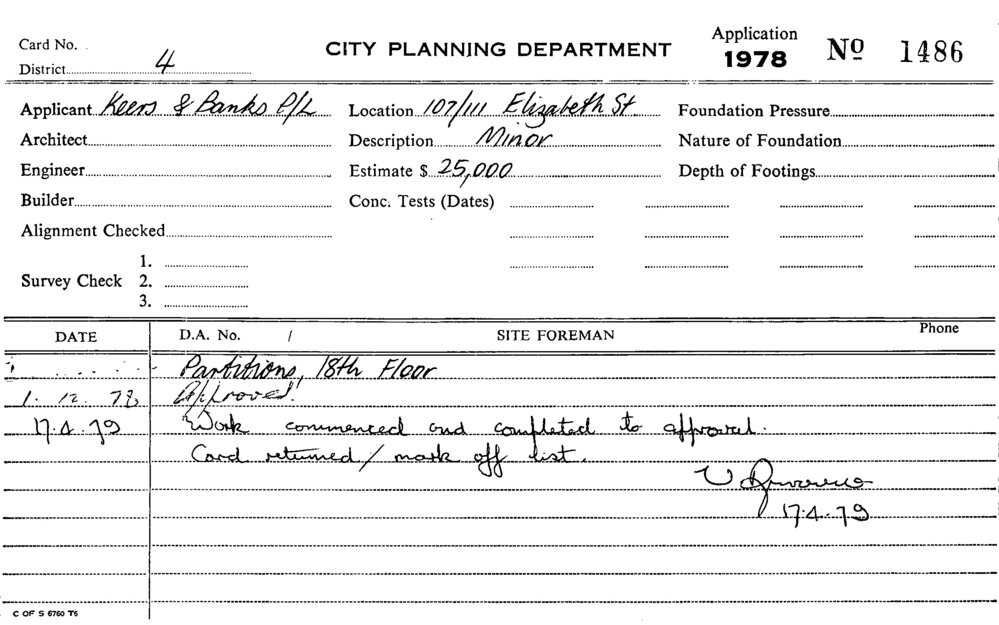 Card No.
District 4
CITY PLANNING DEPARTMENT
Application
1978
No 1486
Applicant Keers & Banks P/L
Architect
Engineer
Builder
Alignment Checked
Survey Check 1.
2.
3.
Location 107/111 Elizabeth St.
Description Minor
Estimate $ 25,000
Conc. Tests (Dates)
Foundation Pressure
Nature of Foundation
Depth of Footings
DATE D.A. No. / SITE FOREMAN Phone
Partitions, 18th Floor
1. 12. 78 Approved.
17.4.79 Work commenced and completed to approval.
Card returned / mark off list.
17.4.79
C OF S 6760 T5